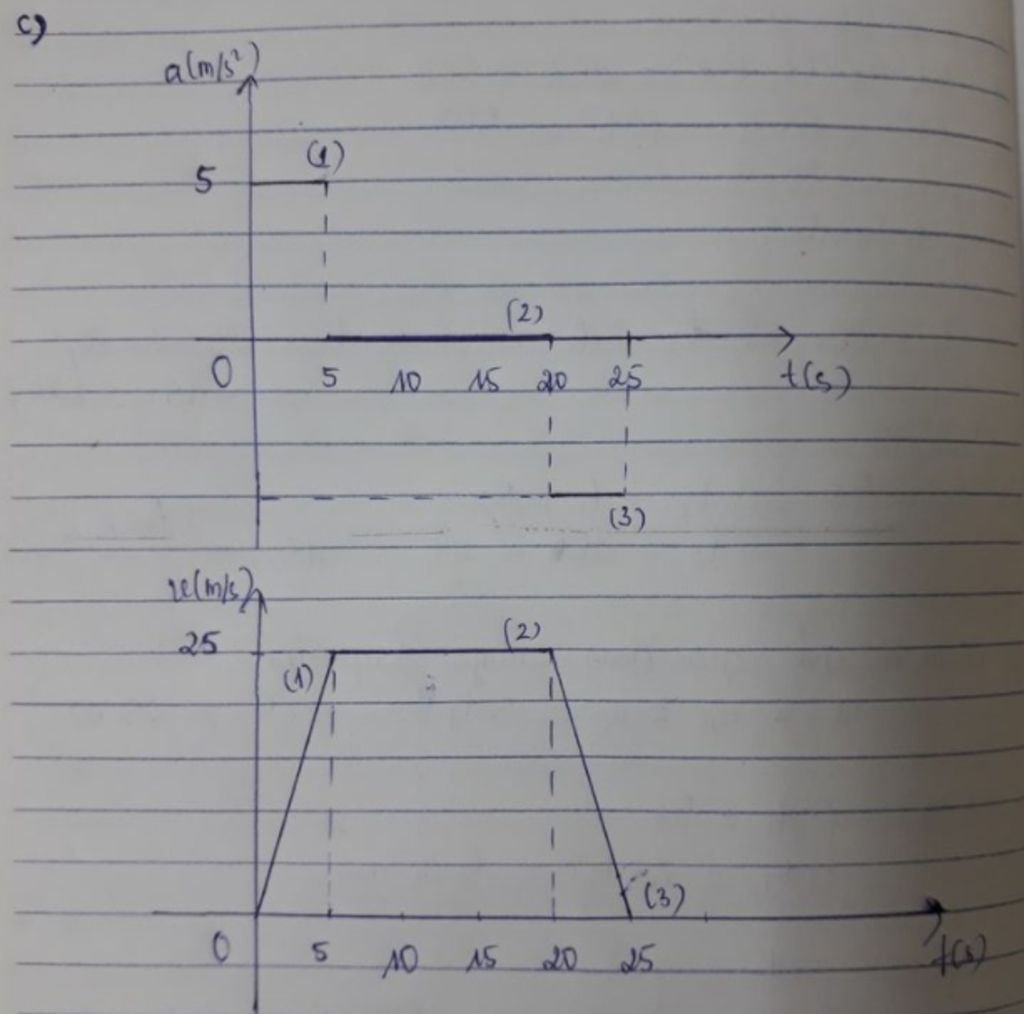 c)
a(m/s²)
(1)
5
(2)
0 5 10 15 20 25 t(s)
(3)
v(m/s)
25 (2)
(1)
(3)
0 5 10 15 20 25 t(s)